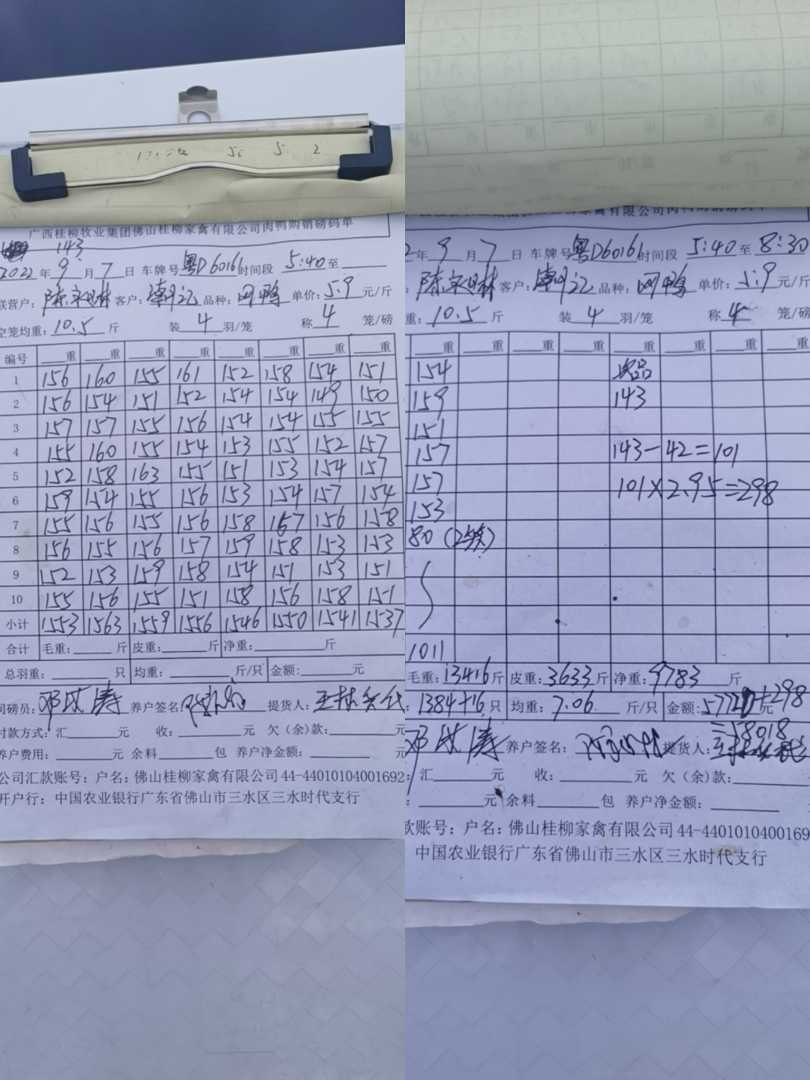 广西桂柳牧业集团佛山桂柳家禽有限公司肉鸭购销磅码单
143
2022年9月7日 车牌号粤D60161时间段5:40至
联营户：陈宋林 客户： 品种： 单价：5.9元/斤
空笼均重：10.5斤 装4羽/笼 称4笼/磅
编号 重 重 重 重 重 重 重 重
1 156 160 155 161 152 158 154 151
2 156 154 151 152 154 154 149 150
3 157 157 155 156 154 154 155 155
4 155 160 155 154 153 155 152 157
5 152 158 163 155 151 153 154 157
6 159 154 155 156 153 154 157 154
7 155 156 155 156 158 167 156 158
8 156 155 156 157 159 158 153 153
9 152 153 159 158 154 151 153 151
10 155 156 155 151 158 156 158 151
小计 1553 1563 1559 1556 1546 1550 1541 1537
合计 毛重：斤 皮重：斤 净重：斤
总羽重：只 均重：斤/只 金额：元
司磅员： 养户签名： 提货人：
付款方式：汇元 收：元 欠（余）款：元
养户费用：元 余料包 养户净金额：元
公司汇款账号：户名：佛山桂柳家禽有限公司44-44010104001692
开户行：中国农业银行广东省佛山市三水区三水时代支行
2年9月7日 车牌号粤D60161时间段5:40至8:30
陈宋林 客户： 品种： 单价：5.9元/斤
重：10.5斤 装4羽/笼 称4笼/磅
重 重 重 重 重 重 重 重
154 次品
159 143
151
157 143-42=101
157 101×2.95=298
153
80
1011
毛重：13416斤 皮重：3633斤 净重：9783斤
1384+16只 均重：7.06斤/只 金额：57720+298元
=58018
养户签名： 提货人：
：汇元 收：元 欠（余）款：
：元 余料包 养户净金额：
款账号：户名：佛山桂柳家禽有限公司44-440101040016​9
中国农业银行广东省佛山市三水区三水时代支行